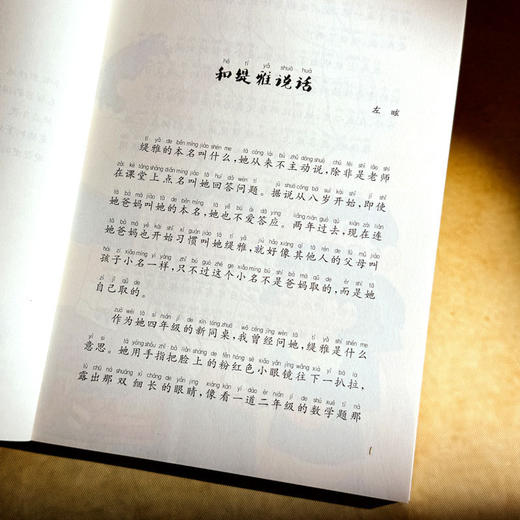 hé tí yǎ shuō huà
和缇雅说话
左昡
tí yǎ de běn míng jiào shén me tā cóng lái bù zhǔ dòng shuō chú fēi shì lǎo shī
缇雅的本名叫什么，她从来不主动说，除非是老师
zài kè táng shàng diǎn míng jiào tā huí dá wèn tí jù shuō cóng bā suì kāi shǐ jí shǐ
在课堂上点名叫她回答问题。据说从八岁开始，即使
tā bà mā jiào tā de běn míng tā yě bú ài dā yìng liǎng nián guò qù xiàn zài lián
她爸妈叫她的本名，她也不爱答应。两年过去，现在连
tā bà mā yě kāi shǐ xí guàn jiào tā tí yǎ jiù hǎo xiàng qí tā rén de fù mǔ jiào
她爸妈也开始习惯叫她缇雅，就好像其他人的父母叫
hái zi xiǎo míng yí yàng zhǐ bú guò zhè ge xiǎo míng bú shì bà mā qǔ de ér shì tā
孩子小名一样，只不过这个小名不是爸妈取的，而是她
zì jǐ qǔ de
自己取的。
zuò wéi tā sì nián jí de xīn tóng zhuō wǒ céng jīng wèn tā tí yǎ shì shén me
作为她四年级的新同桌，我曾经问她，缇雅是什么
yì si tā yòng shǒu zhǐ bǎ liǎn shàng de fěn hóng sè xiǎo yǎn jìng wǎng xià yì bā la
意思。她用手指把脸上的粉红色小眼镜往下一扒拉，
lù chū nà shuāng xì cháng de yǎn jing xiàng kàn yí dào èr nián jí de shù xué tí nà
露出那双细长的眼睛，像看一道二年级的数学题那
1